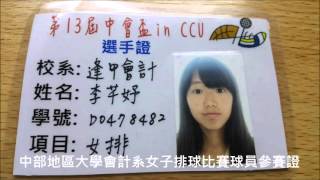 第13屆中會盃in CCU
選手證
校系:逢甲會計
姓名:李芊妤
學號:D0478482
項目:女排
中部地區大學會計系女子排球比賽球員參賽證